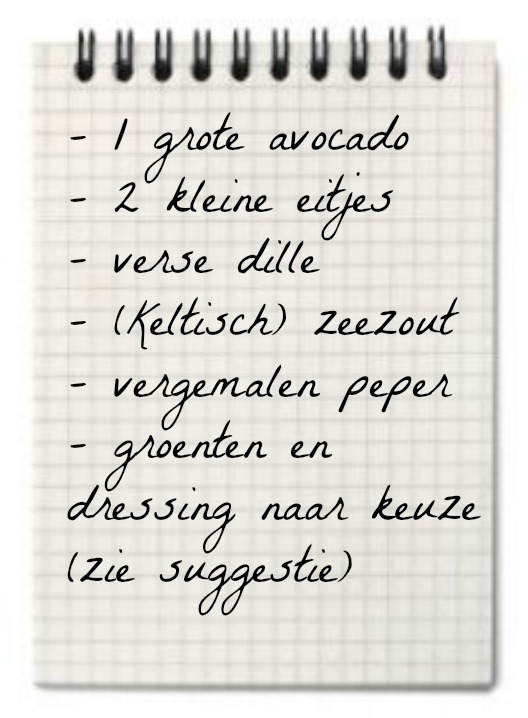 - 1 grote avocado
- 2 kleine eitjes
- verse dille
- (Keltisch) zeezout
- vergemalen peper
- groenten en
dressing naar keuze
(zie suggestie)